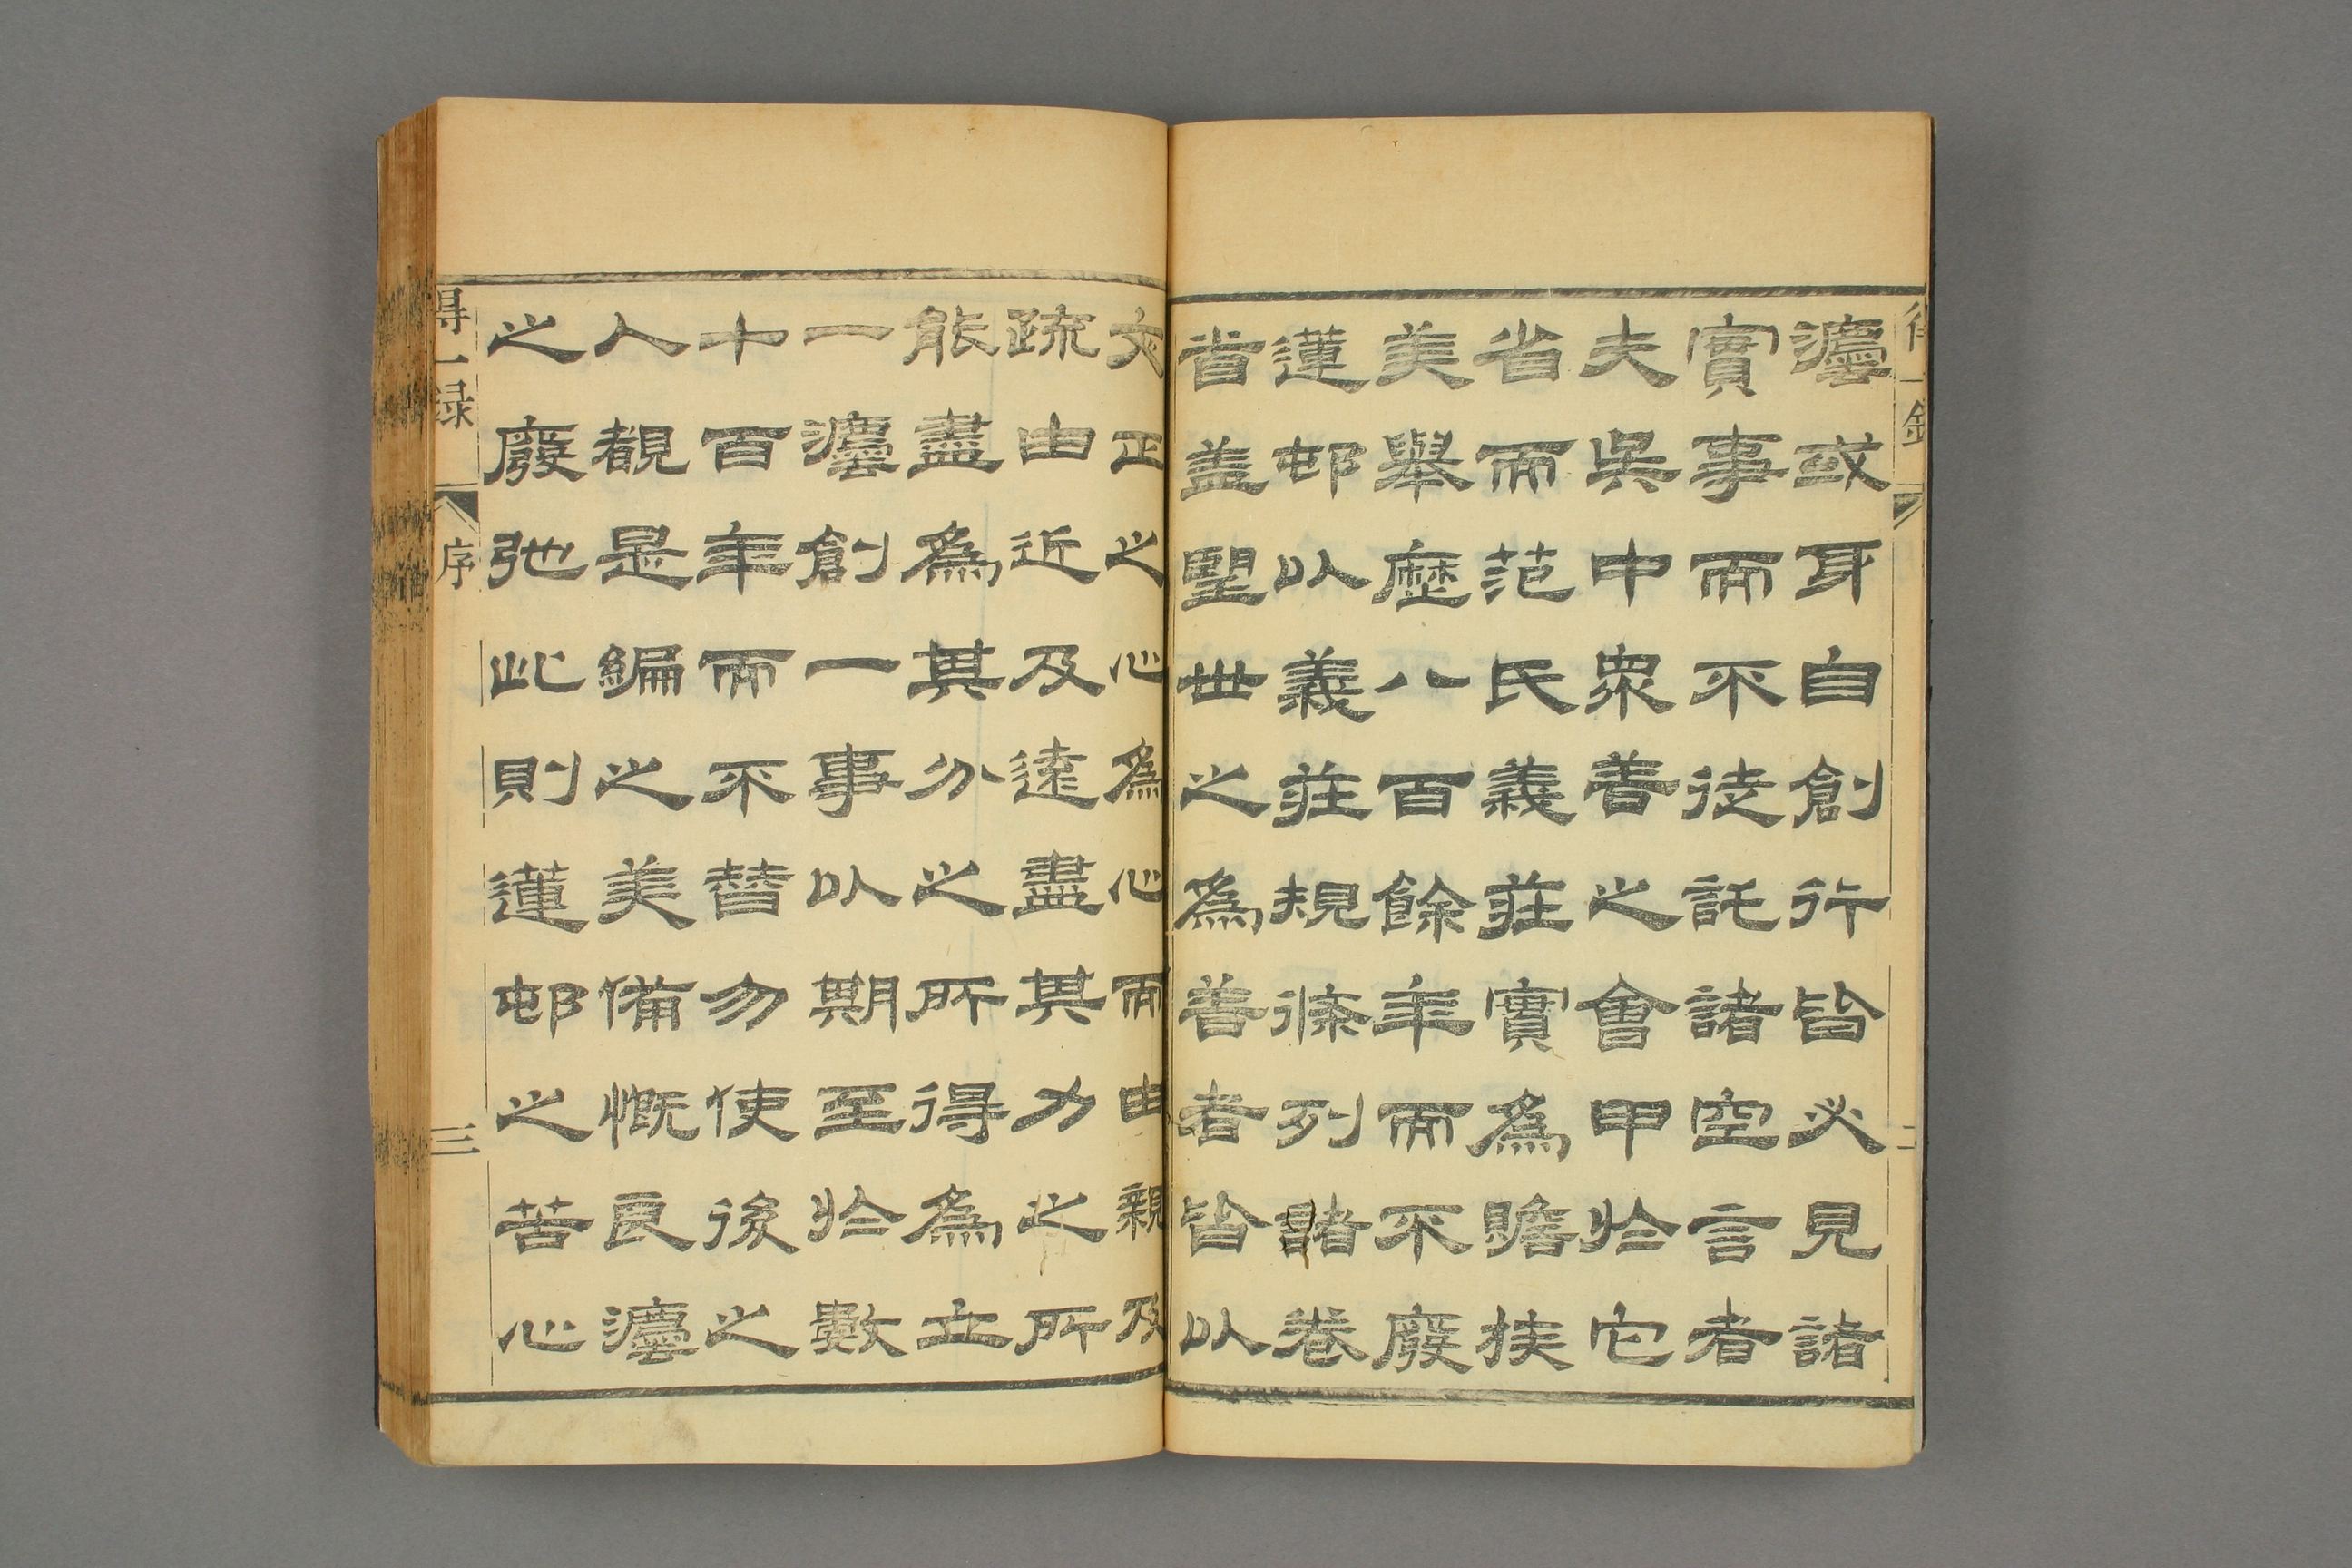 灋或身自創行皆必見諸
實事而不徒託諸空言者
夫吳中眾善之會甲於它
省而范氏義莊實為贍族
美舉歷八百餘年而不廢
蓮邨以義莊規條列諸卷
首蓋望世之為善者皆以
文正之心為心而由親及
疏由近及遠盡其力之所
能盡為其分之所得為立
一灋創一事以期至於數
十百年而不替勿使後之
人覩是編之美備慨良灋
之廢弛此則蓮邨之苦心
得一録
序
三